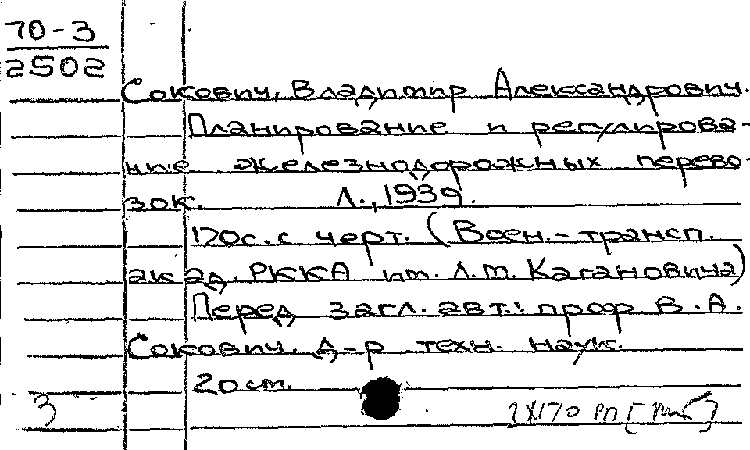 70-3
2502
Сокович, Владимир Александрович.
Планирование и регулирова-
ние железнодорожных перево-
зок. Л., 1939.
170с. с черт. (Воен.-трансп.
акад. РККА им. Л.М. Кагановича)
Перед загл. авт.: проф В.А.
Сокович, д-р техн. наук.
20см.
3 170 РП